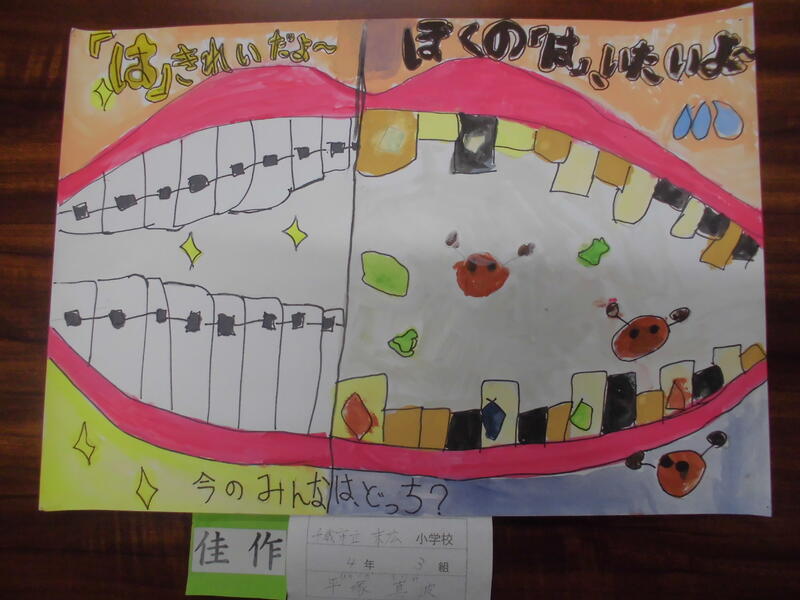 「は」きれいだよ～
ぼくの「は」、いたいよ～
今のみんなは、どっち？
佳作
千歳市立 末広 小学校
4年 3組
平塚